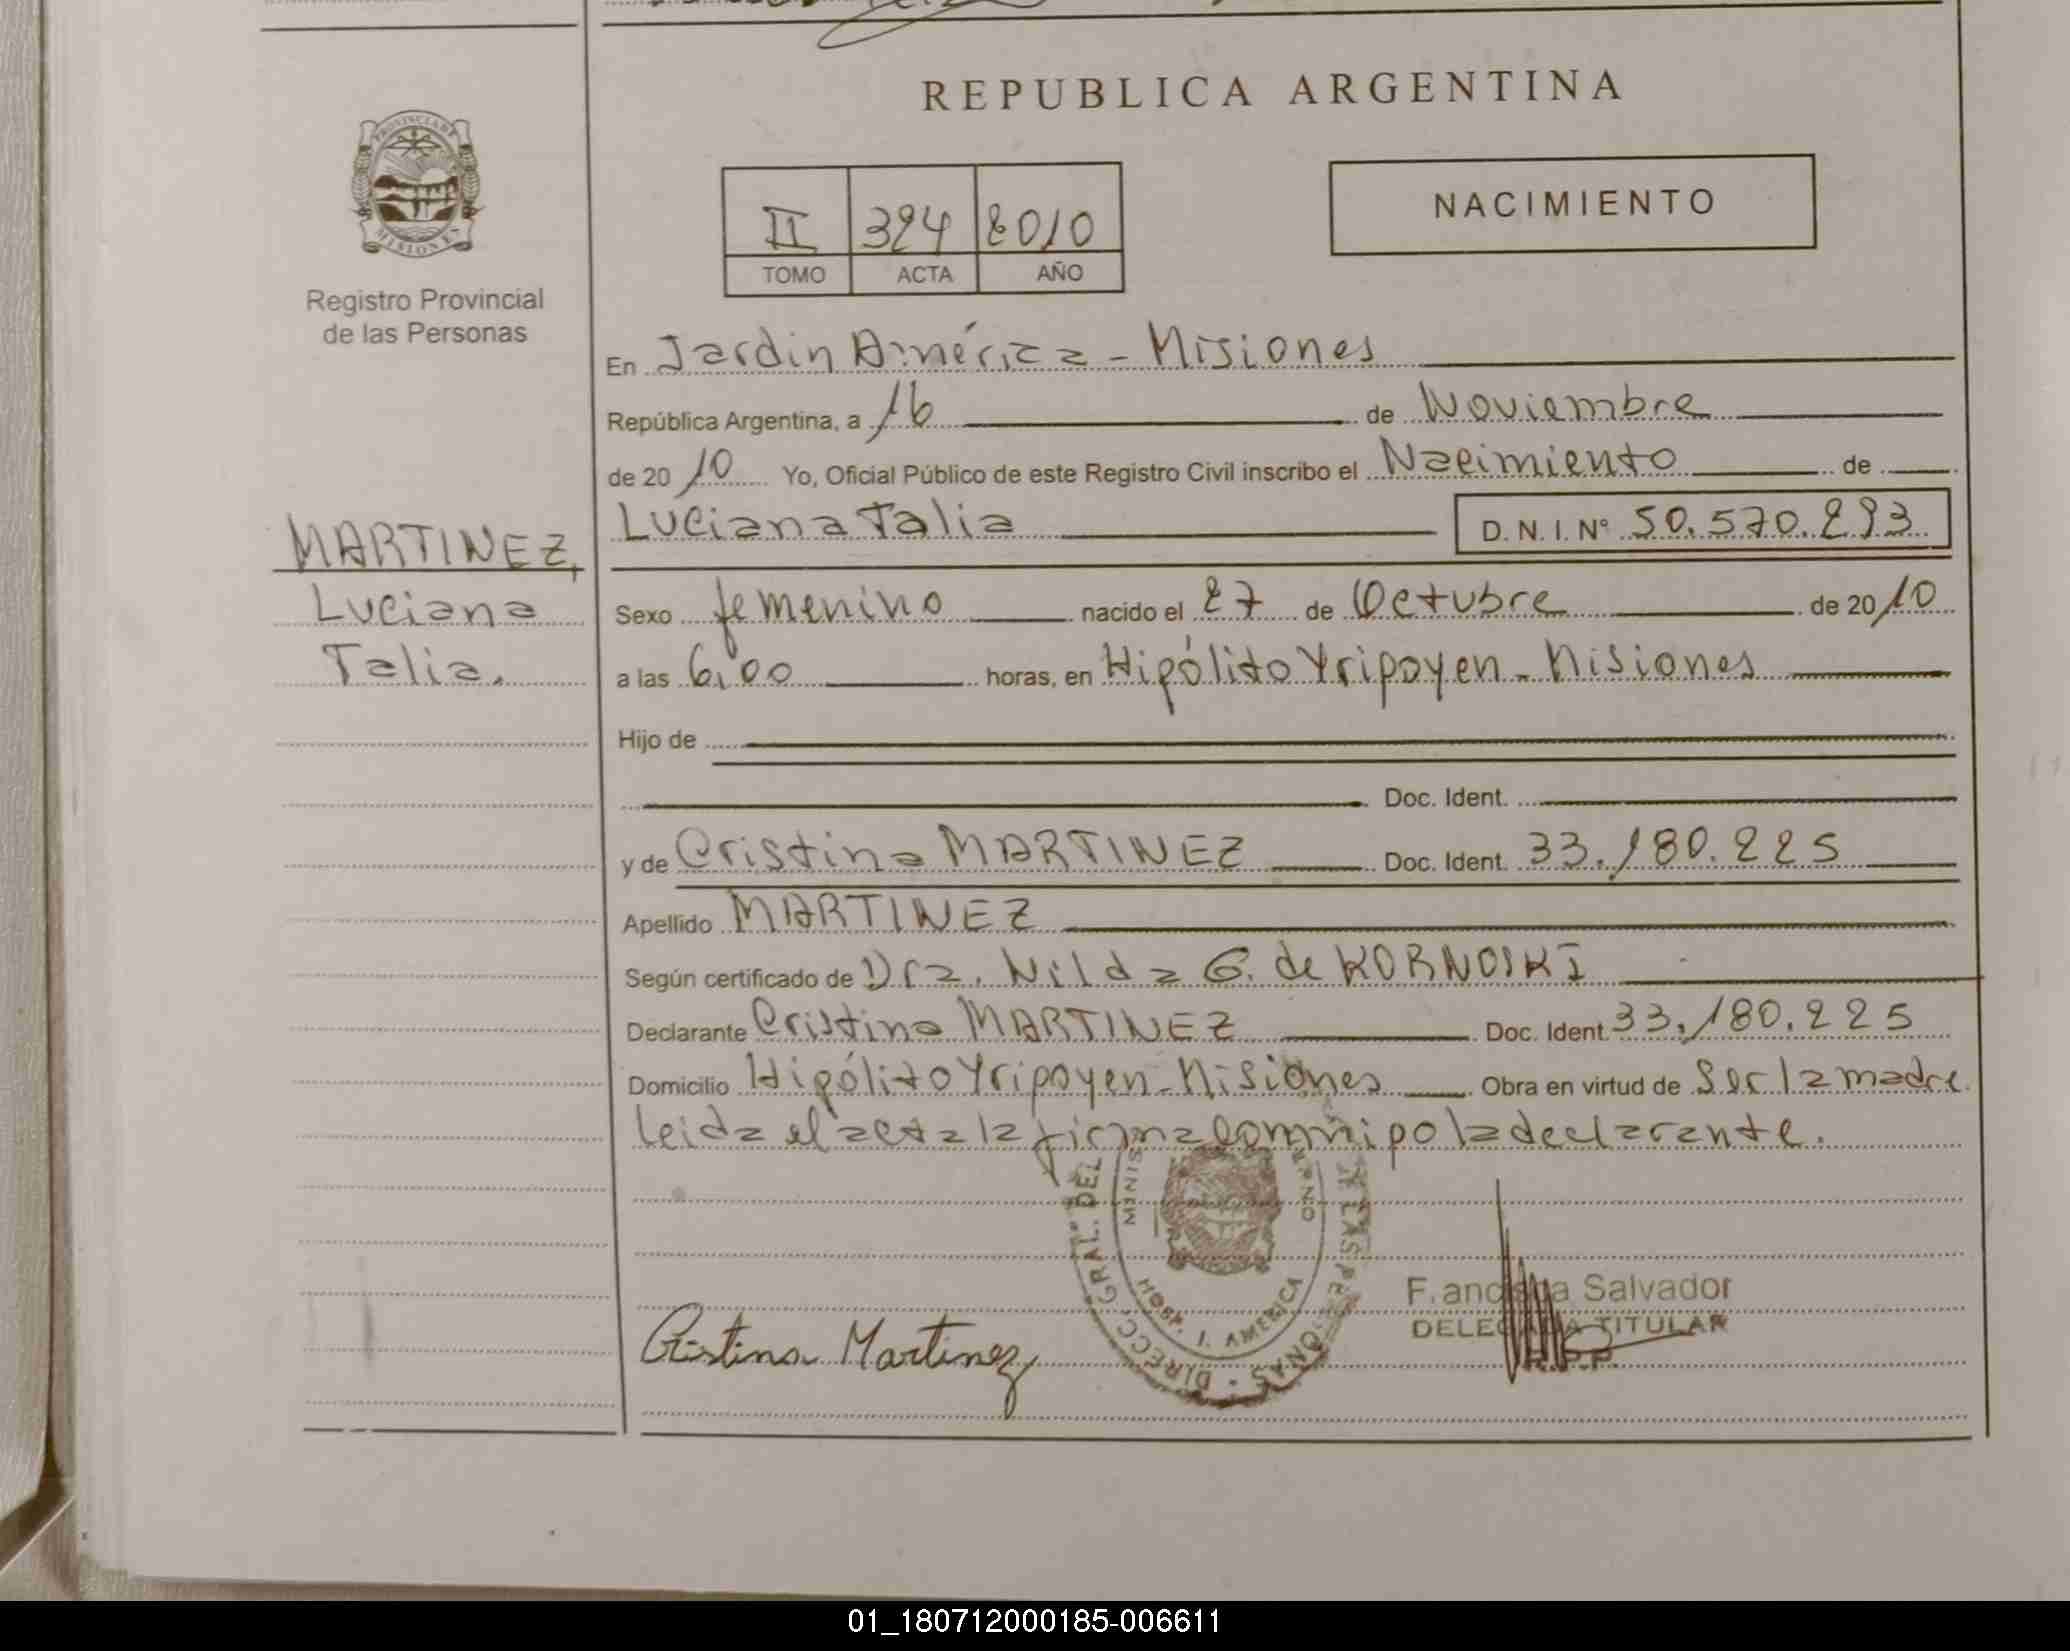 REPUBLICA ARGENTINA
PROVINCIA DE MISIONES
Registro Provincial
de las Personas
II 324 2010
TOMO ACTA AÑO
NACIMIENTO
En Jardin América - Misiones
República Argentina, a 16 de Noviembre
de 20 10 Yo, Oficial Público de este Registro Civil inscribo el Nacimiento de
MARTINEZ,
Luciana
Talia.
Luciana Talia D. N. I. Nº 50.570.293
Sexo femenino nacido el 27 de Octubre de 20 10
a las 6,00 horas, en Hipólito Yripoyen - Misiones
Hijo de
Doc. Ident.
y de Cristina MARTINEZ Doc. Ident. 33.180.225
Apellido MARTINEZ
Según certificado de Dra. Nilda G. de KORNOSKI
Declarante Cristina MARTINEZ Doc. Ident. 33.180.225
Domicilio Hipólito Yripoyen - Misiones Obra en virtud de Ser la madre
leida el acta la firma conmipo la declarante.
DIRECC. GRAL. DEL DE LAS PERSONAS
HOSP. J. AMERICA
Cristina Martinez
Francisca Salvador
DELEGADA TITULAR
R.P.P.
01_180712000185-006611